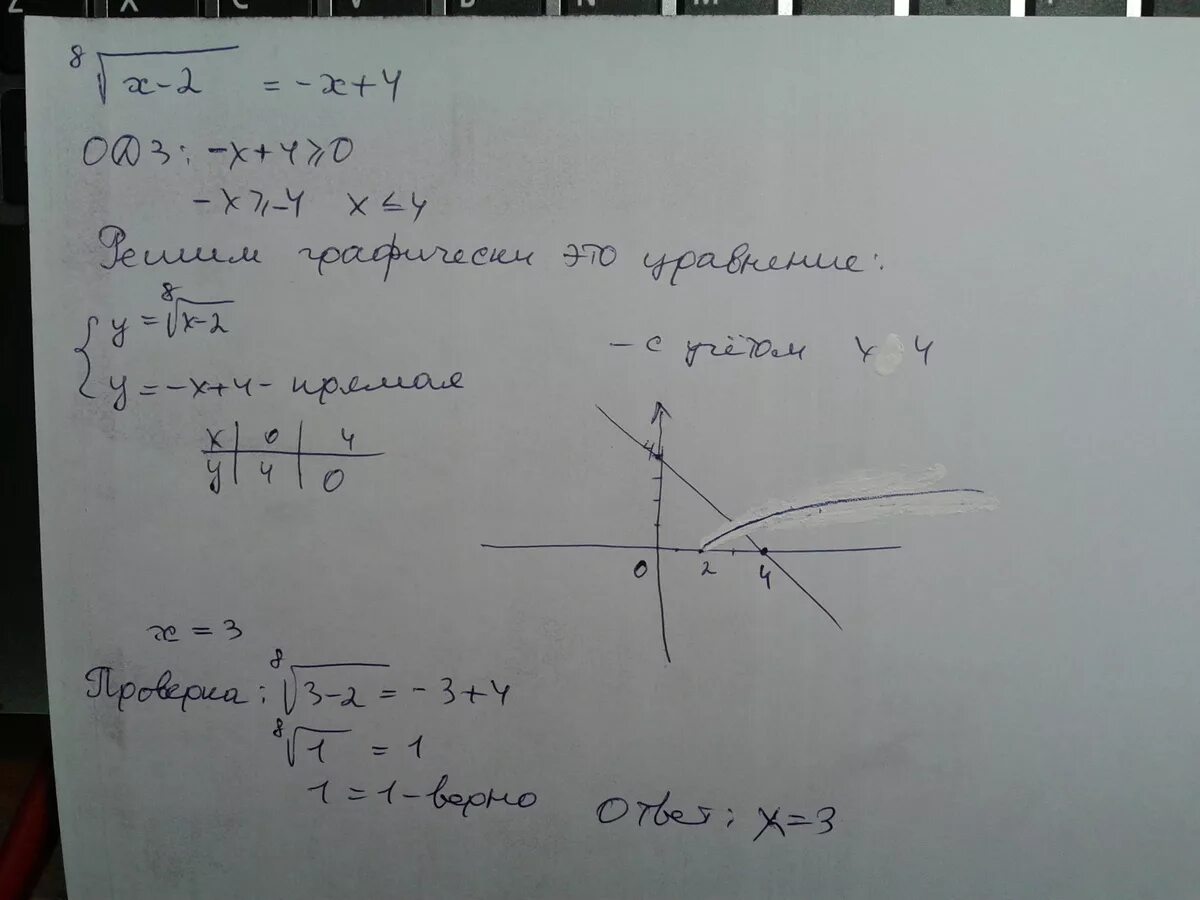 ⁸√(x-2) = -x+4
ОДЗ: -x+4⩾0
-x⩾-4 x≤4
Решим графически это уравнение:
{ y = ⁸√(x-2)
{ y = -x+4 - прямая
- с учётом x 4
x | 0 | 4
y | 4 | 0
4
0 2 4
x = 3
Проверка: ⁸√(3-2) = -3+4
⁸√1 = 1
1 = 1 - верно
Ответ: x=3